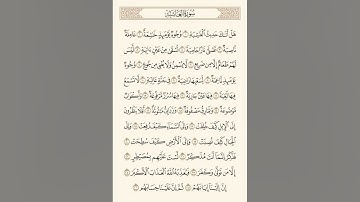 سُورَةُ الغَاشِيَةِ
هَلْ أَتَىٰكَ حَدِيثُ ٱلْغَٰشِيَةِ ١ وُجُوهٌ يَوْمَئِذٍ خَٰشِعَةٌ ٢ عَامِلَةٌ
نَّاصِبَةٌ ٣ تَصْلَىٰ نَارًا حَامِيَةً ٤ تُسْقَىٰ مِنْ عَيْنٍ ءَانِيَةٍ ٥ لَّيْسَ
لَهُمْ طَعَامٌ إِلَّا مِن ضَرِيعٍ ٦ لَّا يُسْمِنُ وَلَا يُغْنِي مِن جُوعٍ ٧ وُجُوهٌ
يَوْمَئِذٍ نَّاعِمَةٌ ٨ لِّسَعْيِهَا رَاضِيَةٌ ٩ فِي جَنَّةٍ عَالِيَةٍ ١٠ لَّا تَسْمَعُ
فِيهَا لَٰغِيَةً ١١ فِيهَا عَيْنٌ جَارِيَةٌ ١٢ فِيهَا سُرُرٌ مَّرْفُوعَةٌ ١٣ وَأَكْوَابٌ
مَّوْضُوعَةٌ ١٤ وَنَمَارِقُ مَصْفُوفَةٌ ١٥ وَزَرَابِيُّ مَبْثُوثَةٌ ١٦ أَفَلَا يَنظُرُونَ
إِلَى ٱلْإِبِلِ كَيْفَ خُلِقَتْ ١٧ وَإِلَى ٱلسَّمَآءِ كَيْفَ رُفِعَتْ ١٨ وَإِلَى
ٱلْجِبَالِ كَيْفَ نُصِبَتْ ١٩ وَإِلَى ٱلْأَرْضِ كَيْفَ سُطِحَتْ ٢٠
فَذَكِّرْ إِنَّمَآ أَنتَ مُذَكِّرٌ ٢١ لَّسْتَ عَلَيْهِم بِمُصَيْطِرٍ ٢٢
إِلَّا مَن تَوَلَّىٰ وَكَفَرَ ٢٣ فَيُعَذِّبُهُ ٱللَّهُ ٱلْعَذَابَ ٱلْأَكْبَرَ ٢٤
إِنَّ إِلَيْنَآ إِيَابَهُمْ ٢٥ ثُمَّ إِنَّ عَلَيْنَا حِسَابَهُم ٢٦